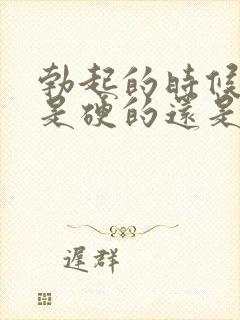 勃起的時候
是硬的還是
遲群